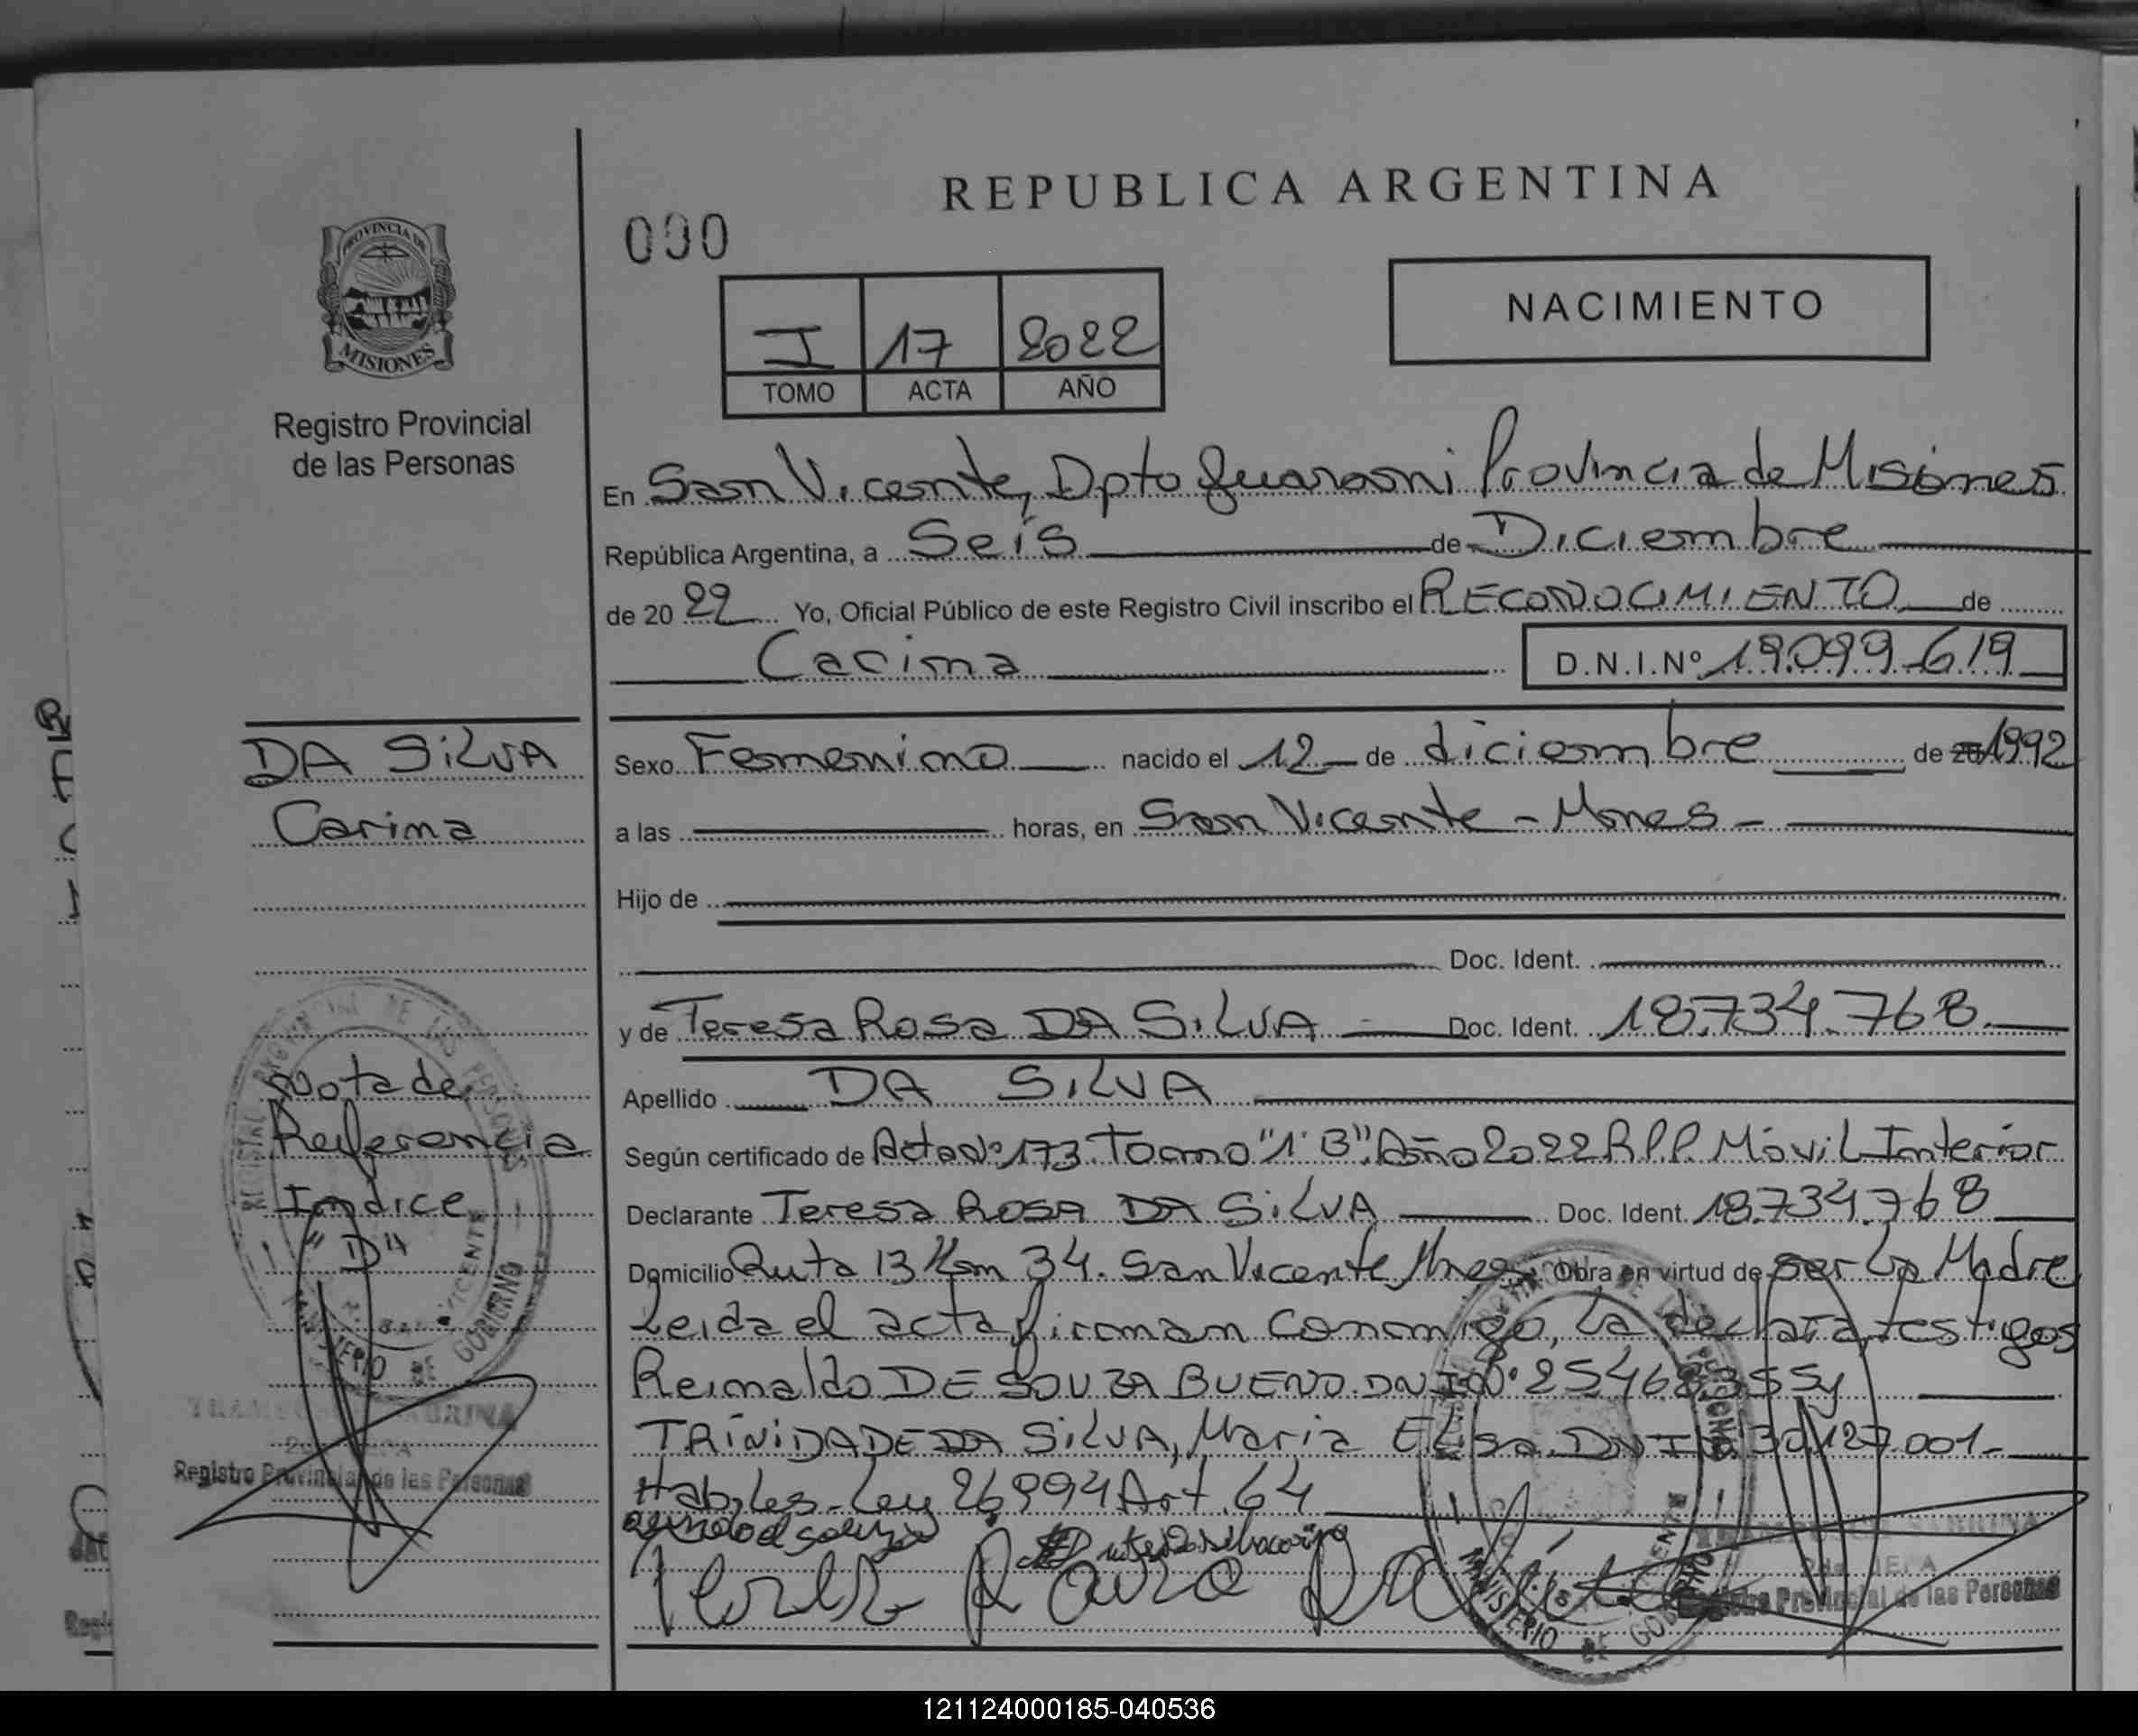 REPUBLICA ARGENTINA
000
NACIMIENTO
I 17 2022
TOMO ACTA AÑO
PROVINCIA DE
MISIONES
Registro Provincial
de las Personas
En San Vicente, Dpto Guarani Provincia de Misiones
República Argentina, a Seis de Diciembre
de 2022 Yo, Oficial Público de este Registro Civil inscribo el RECONOCIMIENTO de
Carina D.N.I.Nº 19.099.619
DA SILVA
Carina
Sexo Femenino nacido el 12 de diciembre de 1992
a las horas, en San Vicente - Mnes -
Hijo de
Doc. Ident.
y de Teresa Rosa DA SILVA Doc. Ident. 18.734.768.
Apellido DA SILVA
Nota de
Referencia
Indice
"D"
Según certificado de Acta Nº 173 Tomo "1ºB" Año 2022 R.P.P. Móvil Interior
Declarante Teresa ROSA DA SILVA Doc. Ident. 18.734.768
Domicilio Ruta 13 Km 34. San Vicente Mnes Obra en virtud de ser La Madre
Leida el acta firman conmigo, la declara, testigos
Reinaldo DE SOUZA BUENO DNI Nº 25468355 y
TRINIDADE DA SILVA, Maria Elisa DNI Nº 30.127.001-
Habiles - Ley 26994 Art. 64
SABRINA
Registro Provincial de las Personas
VICENTE
MINISTERIO DE GOBIERNO
SABRINA
Registro Provincial de las Personas
MINISTERIO DE GOBIERNO
121124000185-040536